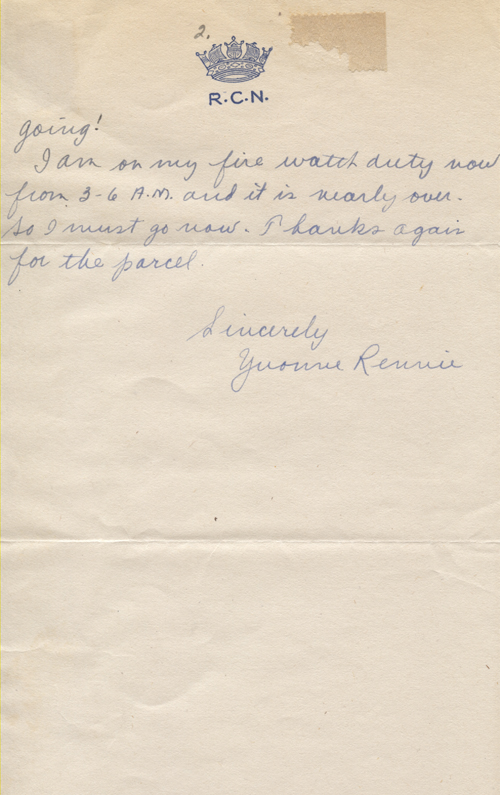 2.
R.C.N.
going!
I am on my fire watch duty now
from 3-6 A.M. and it is nearly over.
So I must go now. Thanks again
for the parcel.
Sincerely
Yvonne Rennie